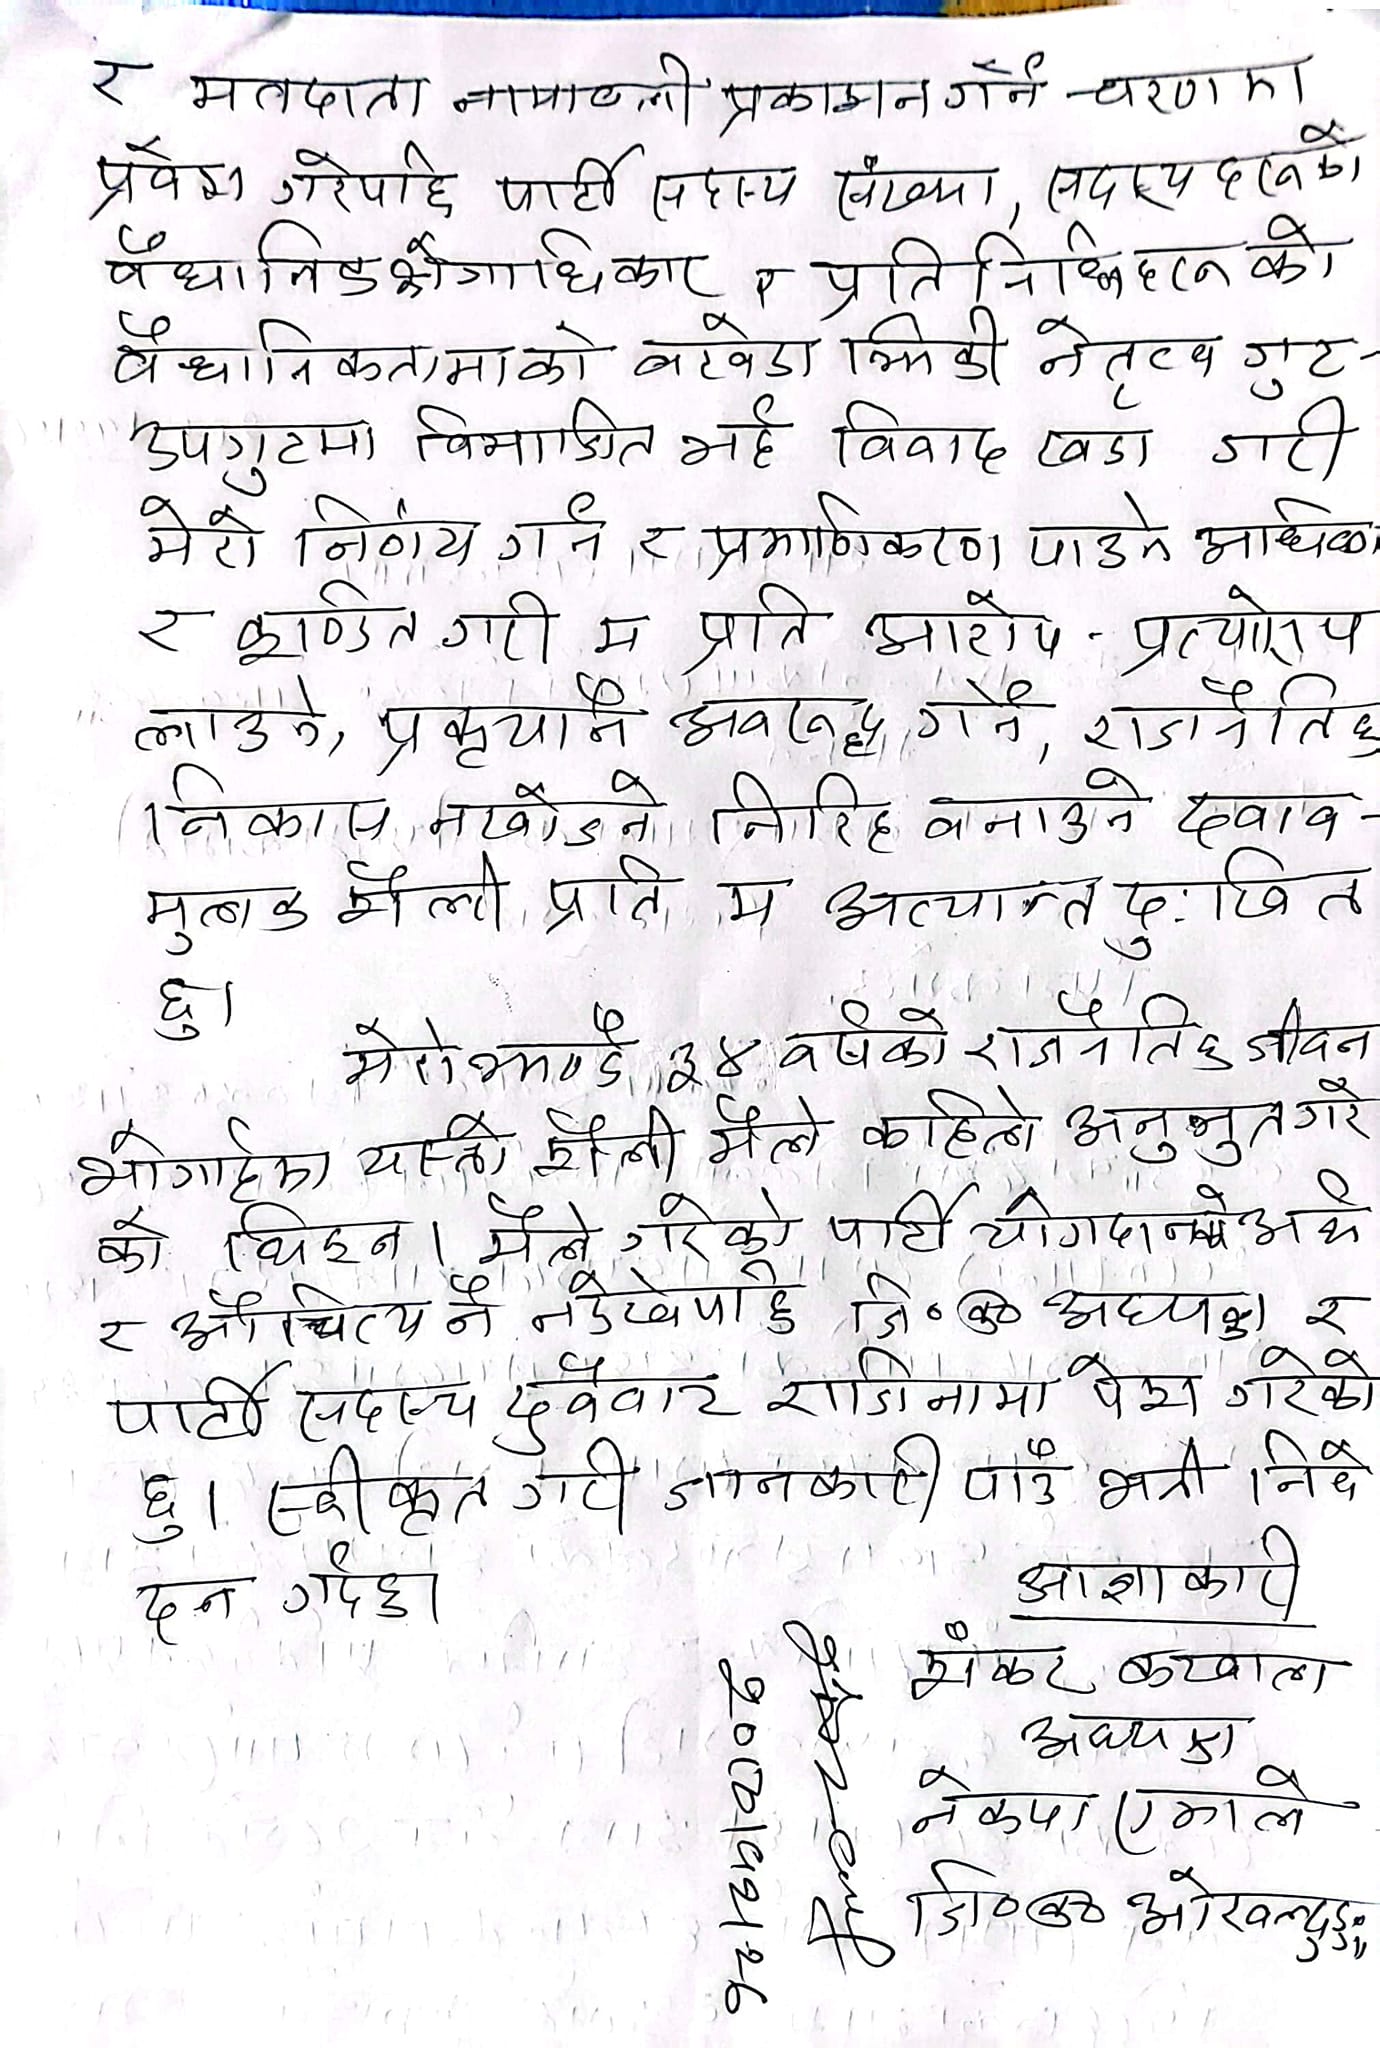 र मतदाता नामावली प्रकाशन गर्ने चरणमा
प्रवेश गरेपछि पार्टी सदस्य संख्या, सदस्यहरूको
वैधानिक र प्रतिनिधिहरूको
वैधानिकतामाको बखेडा झिकी नेतृत्व गुट-
उपगुटमा विभाजित भई विवाद खडा गरी
मेरो निर्णय गर्ने र प्रमाणिकरण पाउने अधिकार
र कुण्ठित गरी म प्रति आरोप-प्रत्यारोप
लाउने, प्रकृयानै अवरूद्ध गर्ने, राजनैतिक
निकास नखोज्ने निरिह बनाउने दवाव-
मुलक शैली प्रति म अत्यान्त दुःखित
छु।
मेरो झण्डै ३४ वर्षको राजनैतिक जीवन
भोगाईमा यस्तो शैली मैले कहिले अनुभुत गरे
को थिइन। मैले गरेको पार्टी योगदानको अर्थ
र औचित्य नै नदेखेपछि जि०क० अध्यक्ष र
पार्टी सदस्य दुवैवाट राजिनामा पेश गरेको
छु। स्वीकृत गरी जानकारी पाउँ भनी निवे
दन गर्दछु।
आज्ञाकारी
शंकर
अध्यक्ष
नेकपा एमाले
जि०क० ओखलढुङ्गा